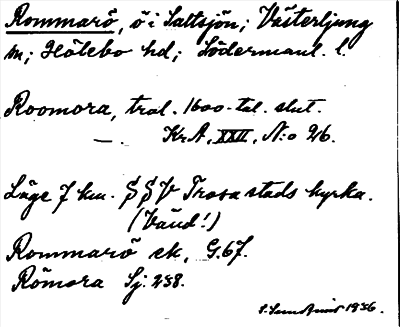 Rommarö, ö i Saltsjön; Västerljung
sn; Hölebo hd; Södermanl. l.
Roomora, trol. 1600-tal. slut.
—. KrA, XXII, N:o 26.
Läge 7 km. SSV Trosa stads kyrka.
(Vänd!)
Rommarö ek, G.67.
Römora Sj. 238.
1936.